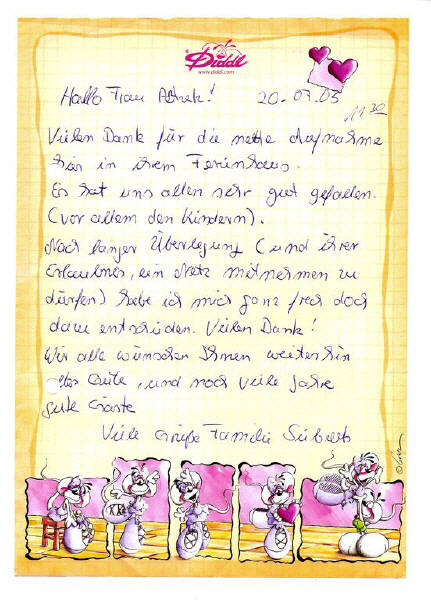 Diddl
www.diddl.com
Hallo Frau 20.07.05
11 30
Vielen Dank für die nette Aufnahme
hier in ihrem Ferienhaus.
Es hat uns allen sehr gut gefallen.
(vor allem den Kindern).
Nach langer Überlegung (und ihrer
Erlaubnes, ein Netz mitnehmen zu
dürfen) habe ich mich ganz frech doch
dazu entschieden. Vielen Dank!
Wir alle wünschen Ihnen weiterhin
alles Gute, und noch viele Jahre
gute Gäste
Viele Grüße Familie